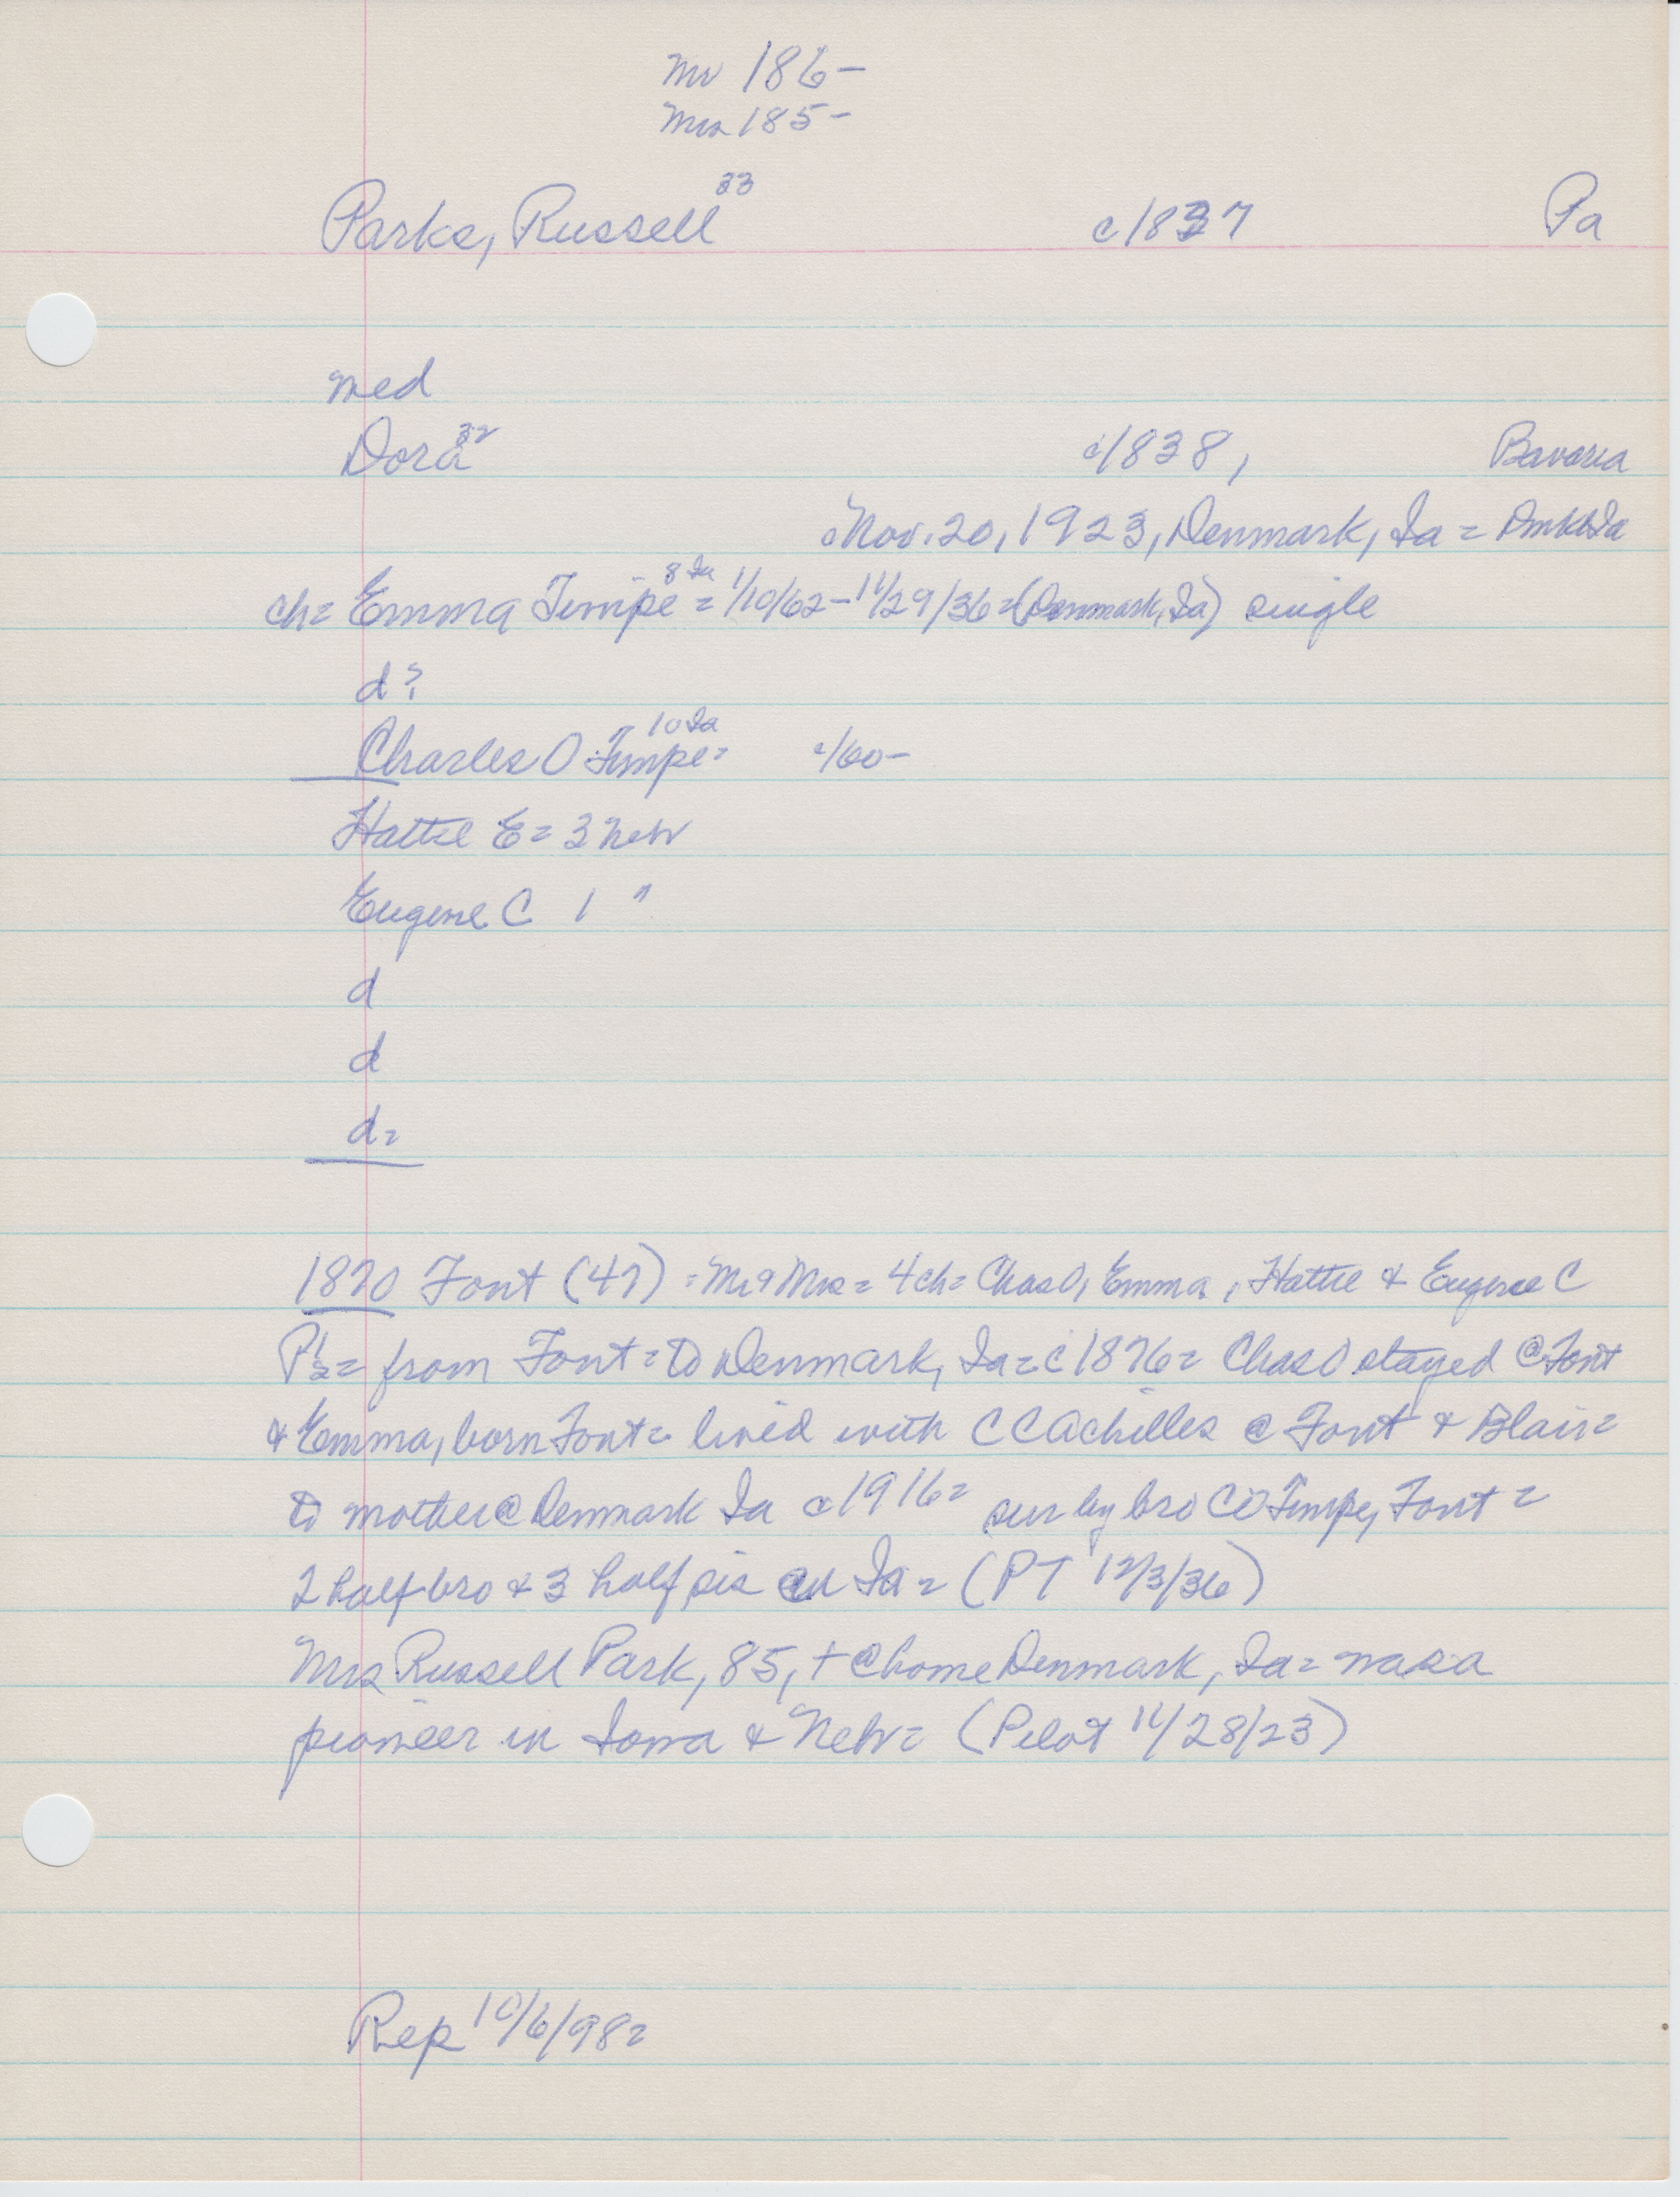 Mr 186-
Mrs 185-
Parks, Russell 33 c1837 Pa
med
Dora 32 c1838, Bavaria
Nov. 20, 1923, Denmark, Ia = DmkIa
ch= Emma Timpe 8 Ia = 1/10/62-11/29/36=(Denmark, Ia) single
d?
Charles O Timpe= 10 Ia c/60-
Hattie E= 3 Neb
Eugene C 1 "
d
d
d=
1870 Font (47) = Mr & Mrs = 4 ch= Chas O, Emma, Hattie & Eugene C
P's= from Font= to Denmark, Ia= c1876= Chas O stayed @ Font
& Emma, born Font= lived with C C Achilles @ Font & Blair=
to mother @ Denmark Ia c1916= sur by bro C O Timpe, Font=
2 half bro & 3 half sis in Ia= (PT 12/3/36)
Mrs Russell Park, 85, + @ home Denmark, Ia= was a
pioneer in Iowa & Neb= (Pilot 11/28/23)
Rep 10/6/98=